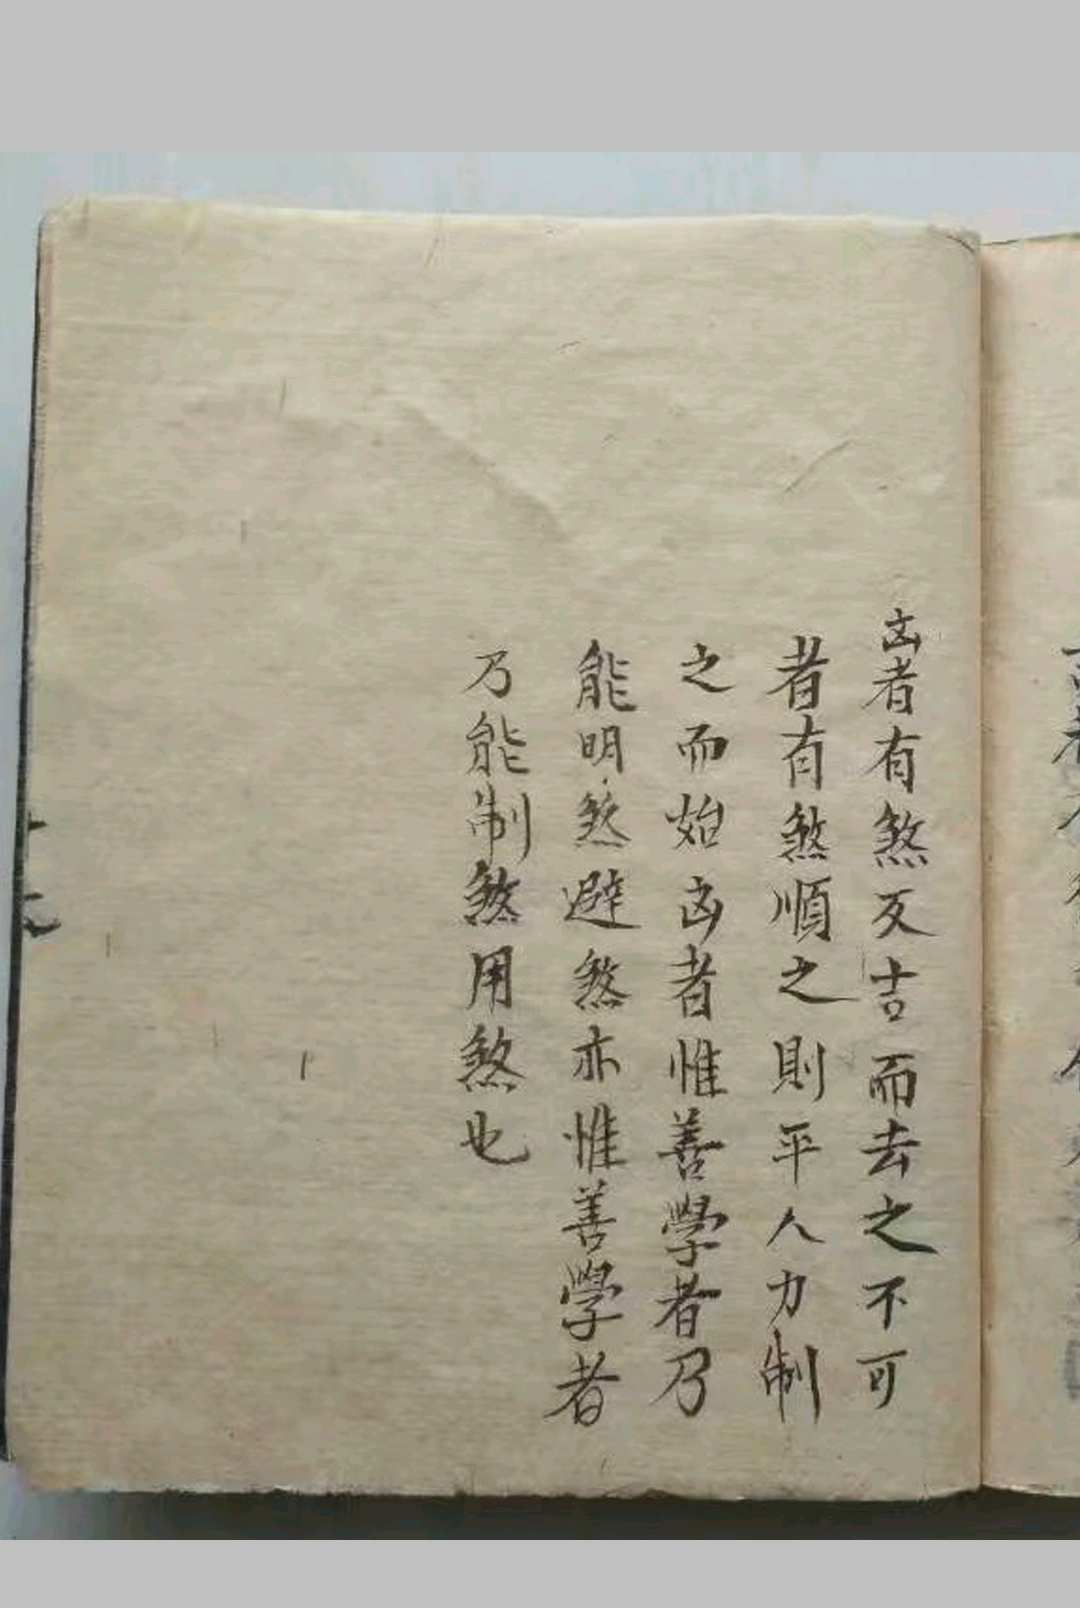 凶者有煞反吉而去之不可
者有煞順之則平人力制
之而始凶者惟善學者乃
能明煞避煞亦惟善學者
乃能制煞用煞也